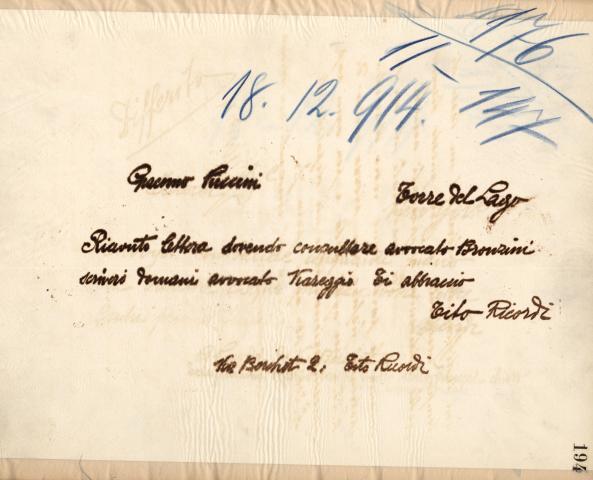 176
11
18. 12. 914. 147
Differito
Giacomo Puccini Torre del Lago
Ricevuto lettera dovendo consultare avvocato Bronzini
scriverò domani avvocato Viareggio Ti abbraccio
Tito Ricordi
Via Borghetto 2, Tito Ricordi
194